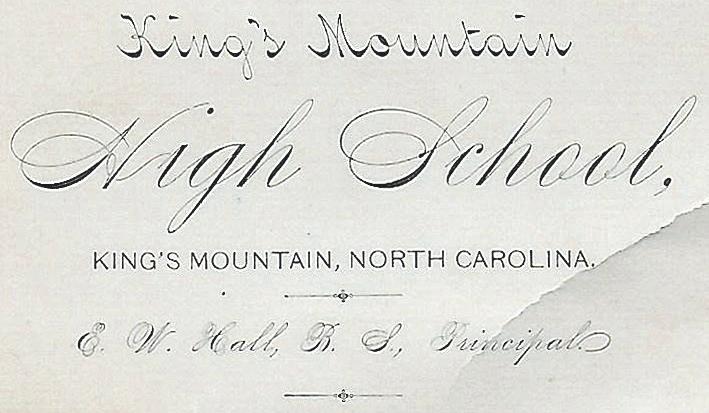 King's Mountain
High School,
KING'S MOUNTAIN, NORTH CAROLINA.
E. W. Hall, B. S., Principal.